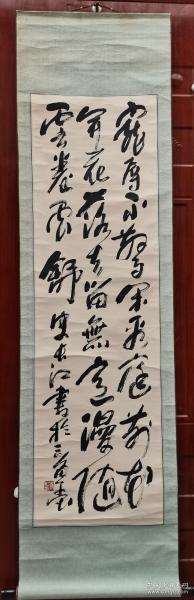 寵辱不驚看庭前花
開花落去留無意漫隨
雲卷雲舒 長江書於三省堂